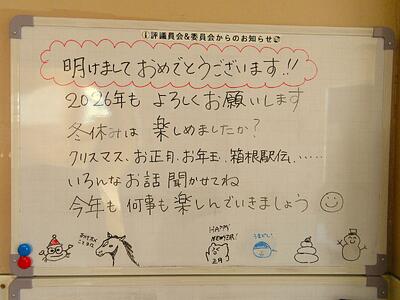 評議員会&委員会からのお知らせ
明けましておめでとうございます!!
2026年も よろしくお願いします
冬休みは 楽しめましたか?
クリスマス、お正月、お年玉、箱根駅伝、……
いろんなお話聞かせてね
今年も 何事も楽しんでいきましょう
HAPPY
NEW YEAR!